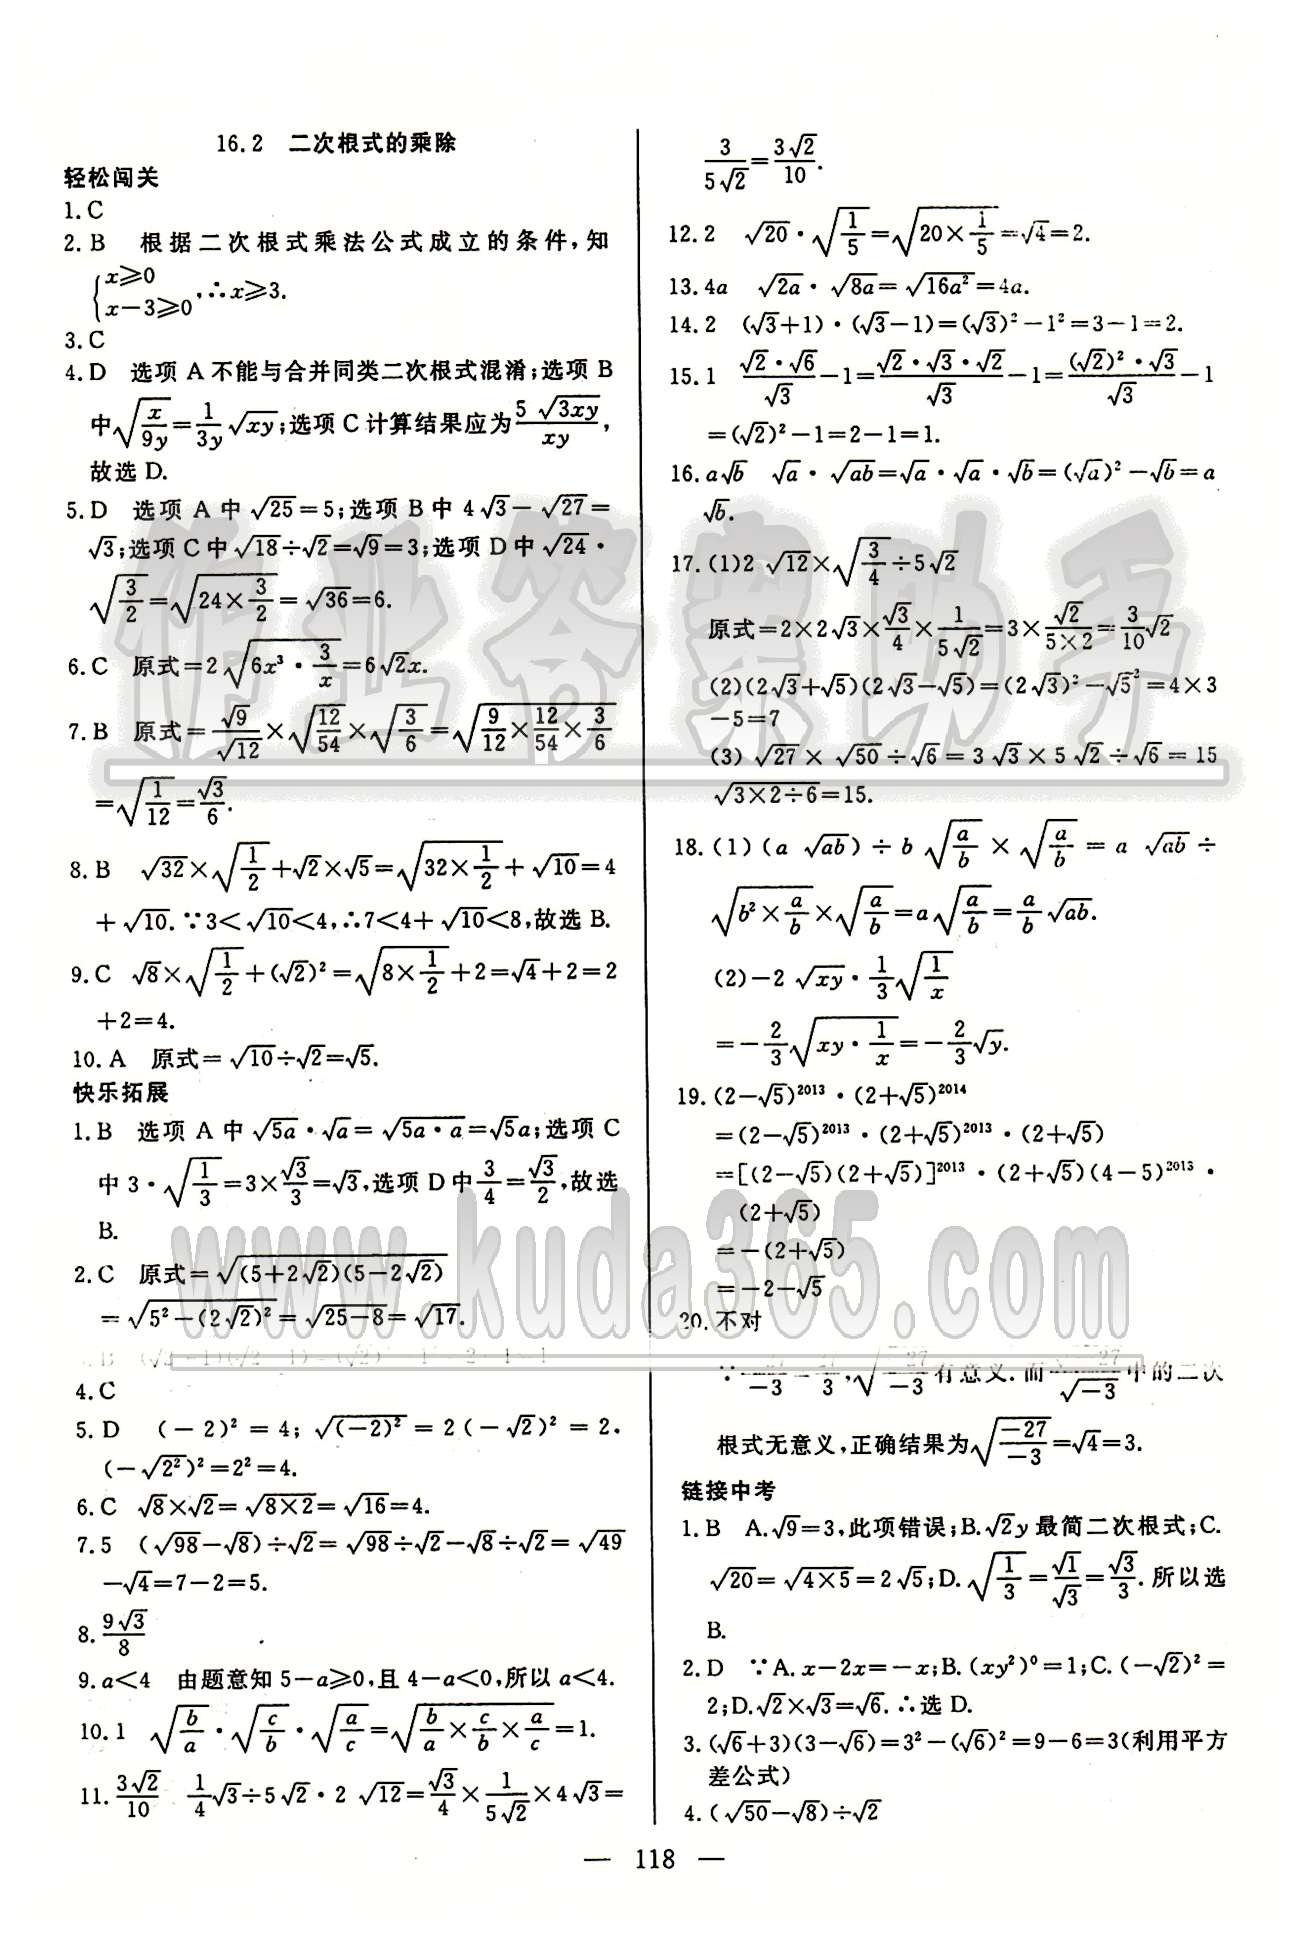 16.2 二次根式的乘除
轻松闯关
1.C
2.B 根据二次根式乘法公式成立的条件,知
{x⩾0
x−3⩾0,∴x⩾3.
3.C
4.D 选项A不能与合并同类二次根式混淆;选项B
中√(x/9y)=1/3y √xy;选项C计算结果应为5√3xy/xy,
故选D.
5.D 选项A中√25=5;选项B中4√3−√27=
√3;选项C中√18÷√2=√9=3;选项D中√24·
√(3/2)=√(24×3/2)=√36=6.
6.C 原式=2√(6x³·3/x)=6√2x.
7.B 原式=√9/√12×√(12/54)×√(3/6)=√(9/12×12/54×3/6)
=√(1/12)=√3/6.
8.B √32×√(1/2)+√2×√5=√(32×1/2)+√10=4
+√10.∵3<√10<4,∴7<4+√10<8,故选B.
9.C √8×√(1/2)+(√2)²=√(8×1/2)+2=√4+2=2
+2=4.
10.A 原式=√10÷√2=√5.
快乐拓展
1.B 选项A中√5a·√a=√(5a·a)=√5a;选项C
中3·√(1/3)=3×√3/3=√3,选项D中3/4=√3/2,故选
B.
2.C 原式=√((5+2√2)(5−2√2))
=√(5²−(2√2)²)=√(25−8)=√17.
4.C
5.D (−2)²=4;√(−2)²=2(−√2)²=2.
(−√2²)²=2²=4.
6.C √8×√2=√(8×2)=√16=4.
7.5 (√98−√8)÷√2=√98÷√2−√8÷√2=√49
−√4=7−2=5.
8.9√3/8
9.a<4 由题意知5−a⩾0,且4−a<0,所以a<4.
10.1 √(b/a)·√(c/b)·√(a/c)=√(b/a×c/b×a/c)=1.
11.3√2/10 1/4√3÷5√2·2√12=√3/4×1/5√2×4√3=
3/5√2=3√2/10.
12.2 √20·√(1/5)=√(20×1/5)=√4=2.
13.4a √2a·√8a=√16a²=4a.
14.2 (√3+1)·(√3−1)=(√3)²−1²=3−1=2.
15.1 √2·√6/√3−1=√2·√3·√2/√3−1=(√2)²·√3/√3−1
=(√2)²−1=2−1=1.
16.a√b √a·√ab=√a·√a·√b=(√a)²−√b=a
√b.
17.(1)2√12×√(3/4)÷5√2
原式=2×2√3×√3/4×1/5√2=3×√2/5×2=3/10√2
(2)(2√3+√5)(2√3−√5)=(2√3)²−√5²=4×3
−5=7
(3)√27×√50÷√6=3√3×5√2÷√6=15
√(3×2÷6)=15.
18.(1)(a√ab)÷b√(a/b)×√(a/b)=a√ab÷
√(b²×a/b)×√(a/b)=a√(a/b)=a/b√ab.
(2)−2√xy·1/3√(1/x)
=−2/3√(xy·1/x)=−2/3√y.
19.(2−√5)²⁰¹³·(2+√5)²⁰¹⁴
=(2−√5)²⁰¹³·(2+√5)²⁰¹³·(2+√5)
=[(2−√5)(2+√5)]²⁰¹³·(2+√5)(4−5)²⁰¹³·
(2+√5)
=−(2+√5)
=−2−√5
20.不对
有意义.而 中的二次
根式无意义,正确结果为√(−27/−3)=√4=3.
链接中考
1.B A.√9=3,此项错误;B.√2y最简二次根式;C.
√20=√(4×5)=2√5;D.√(1/3)=√1/√3=√3/3.所以选
B.
2.D ∵A.x−2x=−x;B.(xy²)⁰=1;C.(−√2)²=
2;D.√2×√3=√6.∴选D.
3.(√6+3)(3−√6)=3²−(√6)²=9−6=3(利用平方
差公式)
4.(√50−√8)÷√2
— 118 —
作业答案助手
www.kuda365.com